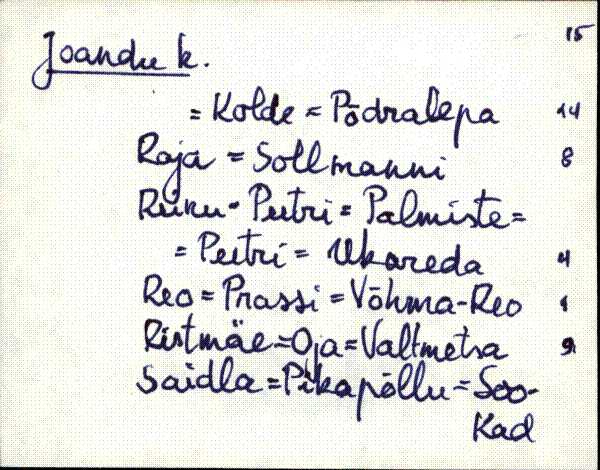 15
Joandu k.
= Kolde = Põdralepa 14
Raja = Sollmanni 8
Riinu - Peetri = Palmiste =
= Peetri = Ukareda 4
Reo = Prassi = Võhma-Reo 1
Ristmäe = Oja = Valtmetsa 9
Saidla = Pikapõllu = Soo-
Kad